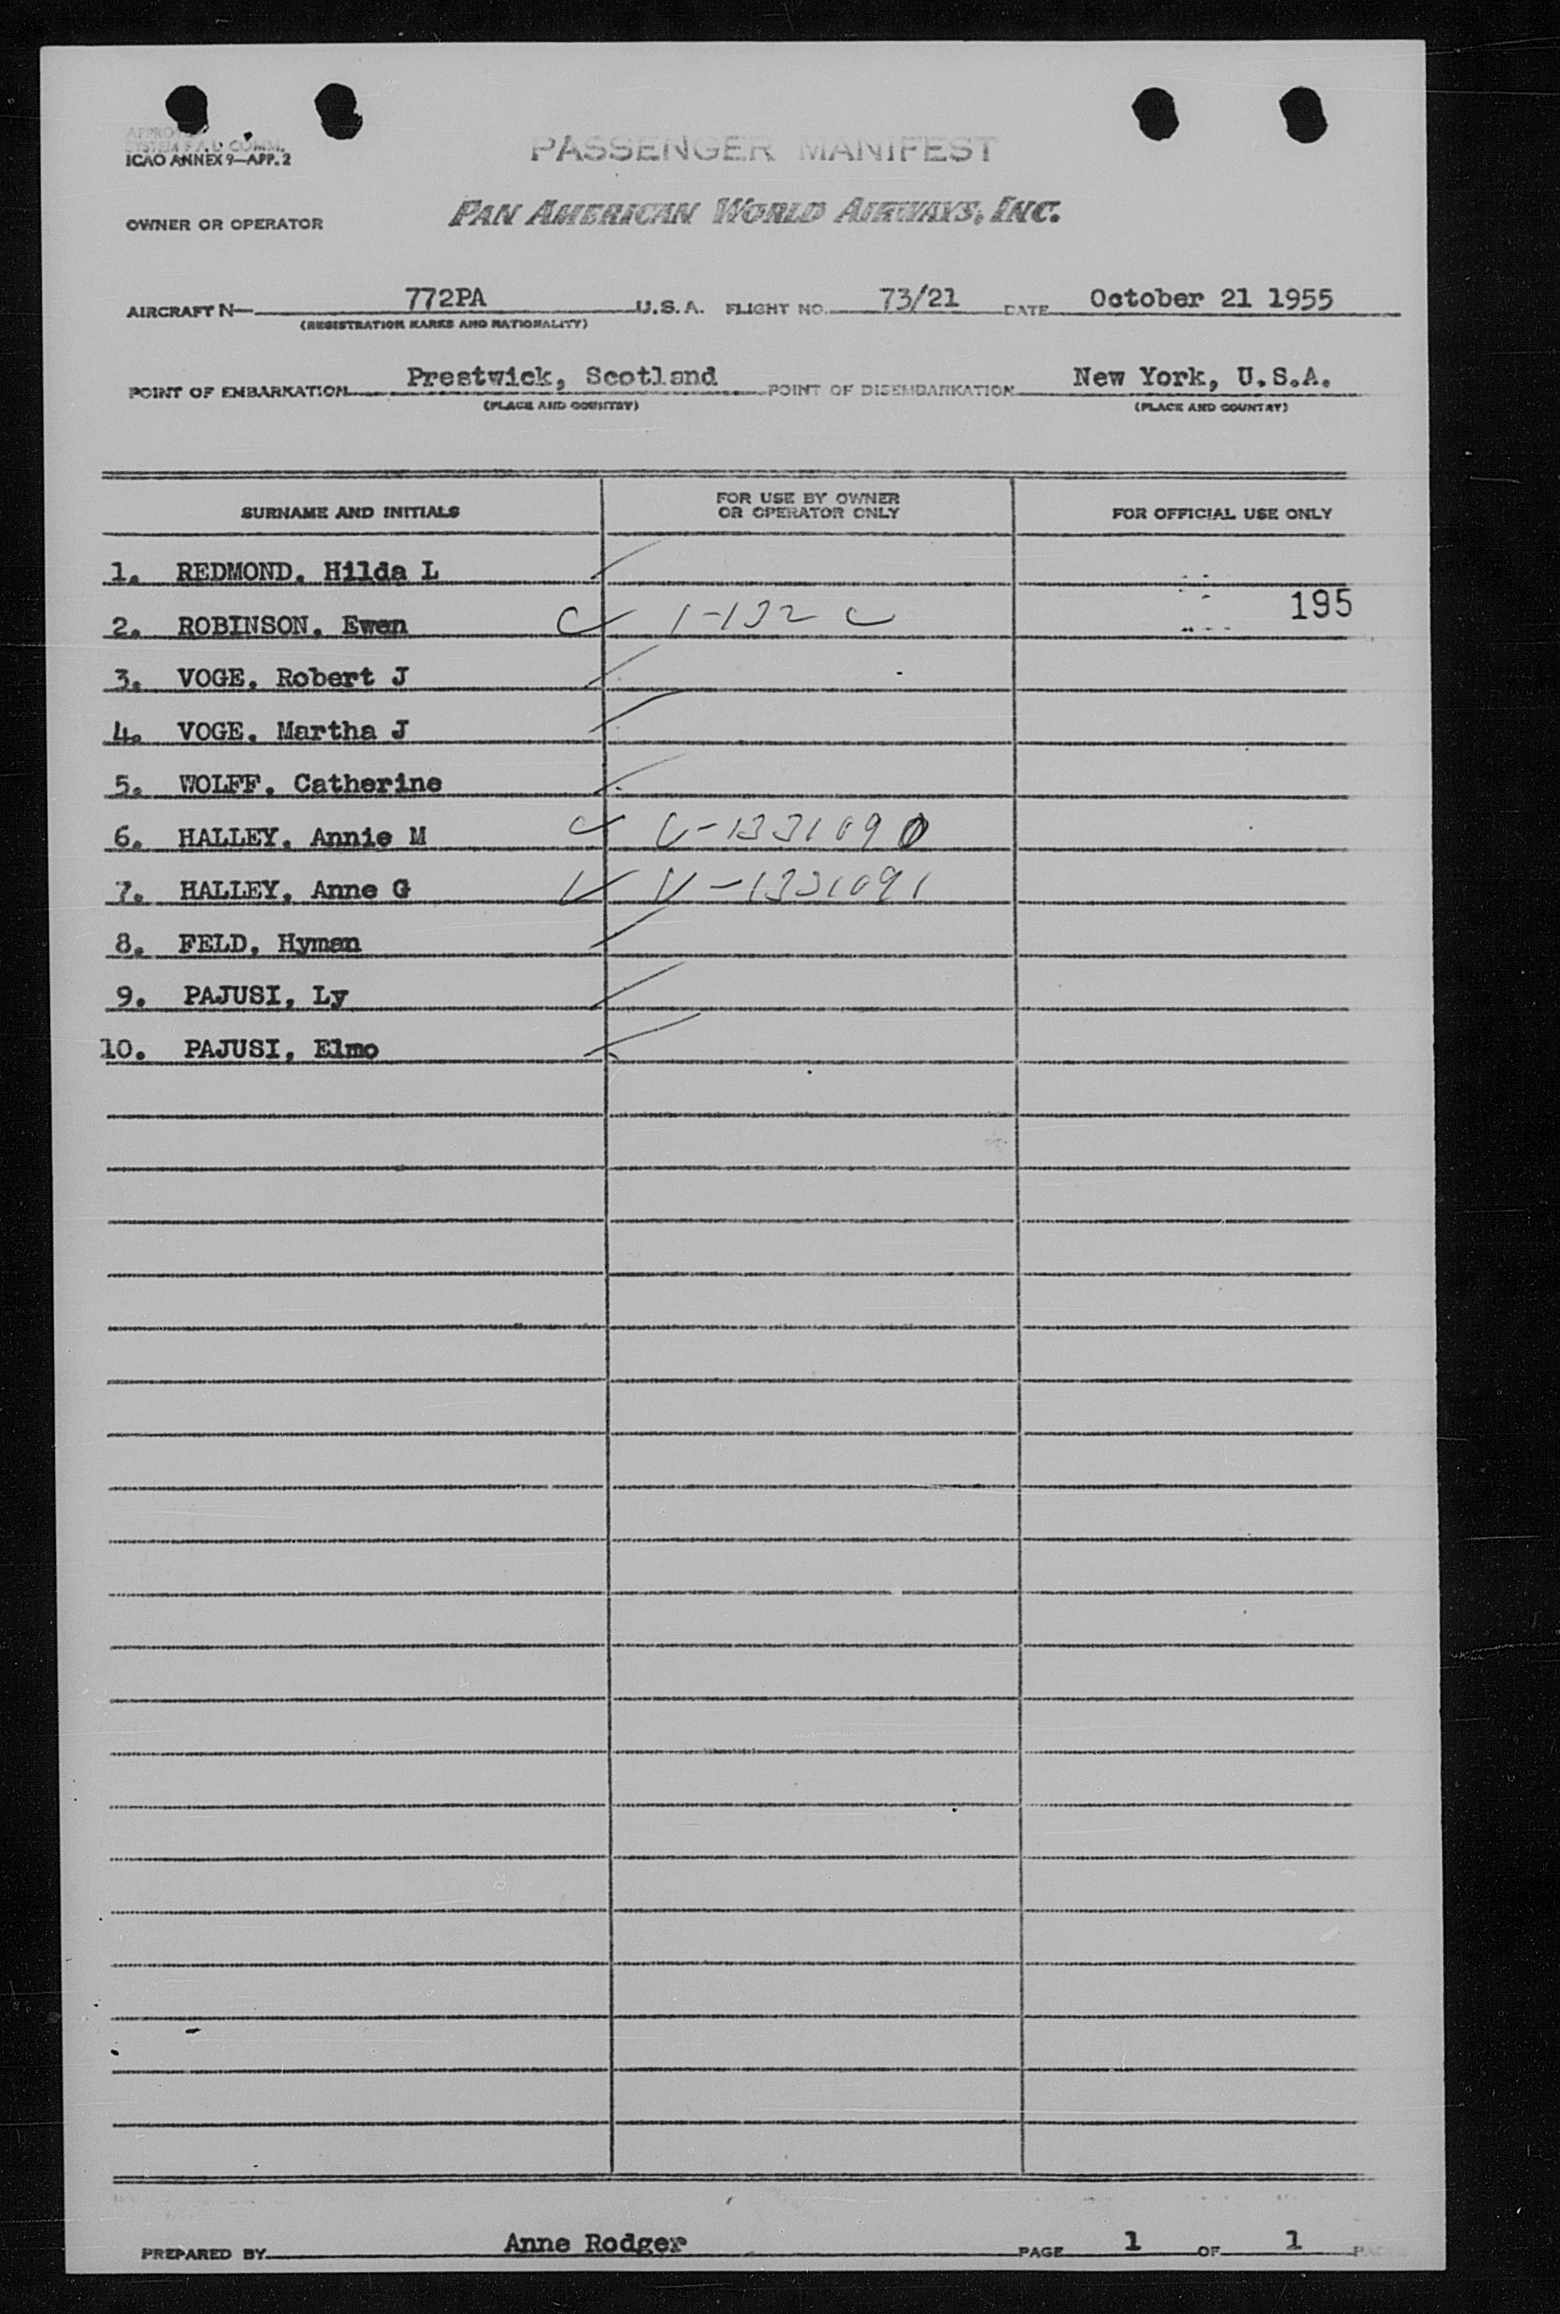 PASSENGER MANIFEST
SYSTEM F.A.L. COMM.
ICAO ANNEX 9—APP. 2
OWNER OR OPERATOR PAN AMERICAN WORLD AIRWAYS, INC.
AIRCRAFT N— 772PA U.S.A. FLIGHT NO. 73/21 DATE October 21 1955
(REGISTRATION MARKS AND NATIONALITY)
POINT OF EMBARKATION Prestwick, Scotland POINT OF DISEMBARKATION New York, U.S.A.
(PLACE AND COUNTRY) (PLACE AND COUNTRY)
SURNAME AND INITIALS FOR USE BY OWNER OR OPERATOR ONLY FOR OFFICIAL USE ONLY
1. REDMOND, Hilda L
2. ROBINSON, Ewen 1-132 195
3. VOGE, Robert J
4. VOGE, Martha J
5. WOLFF, Catherine
6. HALLEY, Annie M V-1331090
7. HALLEY, Anne G V-1331091
8. FELD, Hyman
9. PAJUSI, Ly
10. PAJUSI, Elmo
PREPARED BY Anne Rodger PAGE 1 OF 1